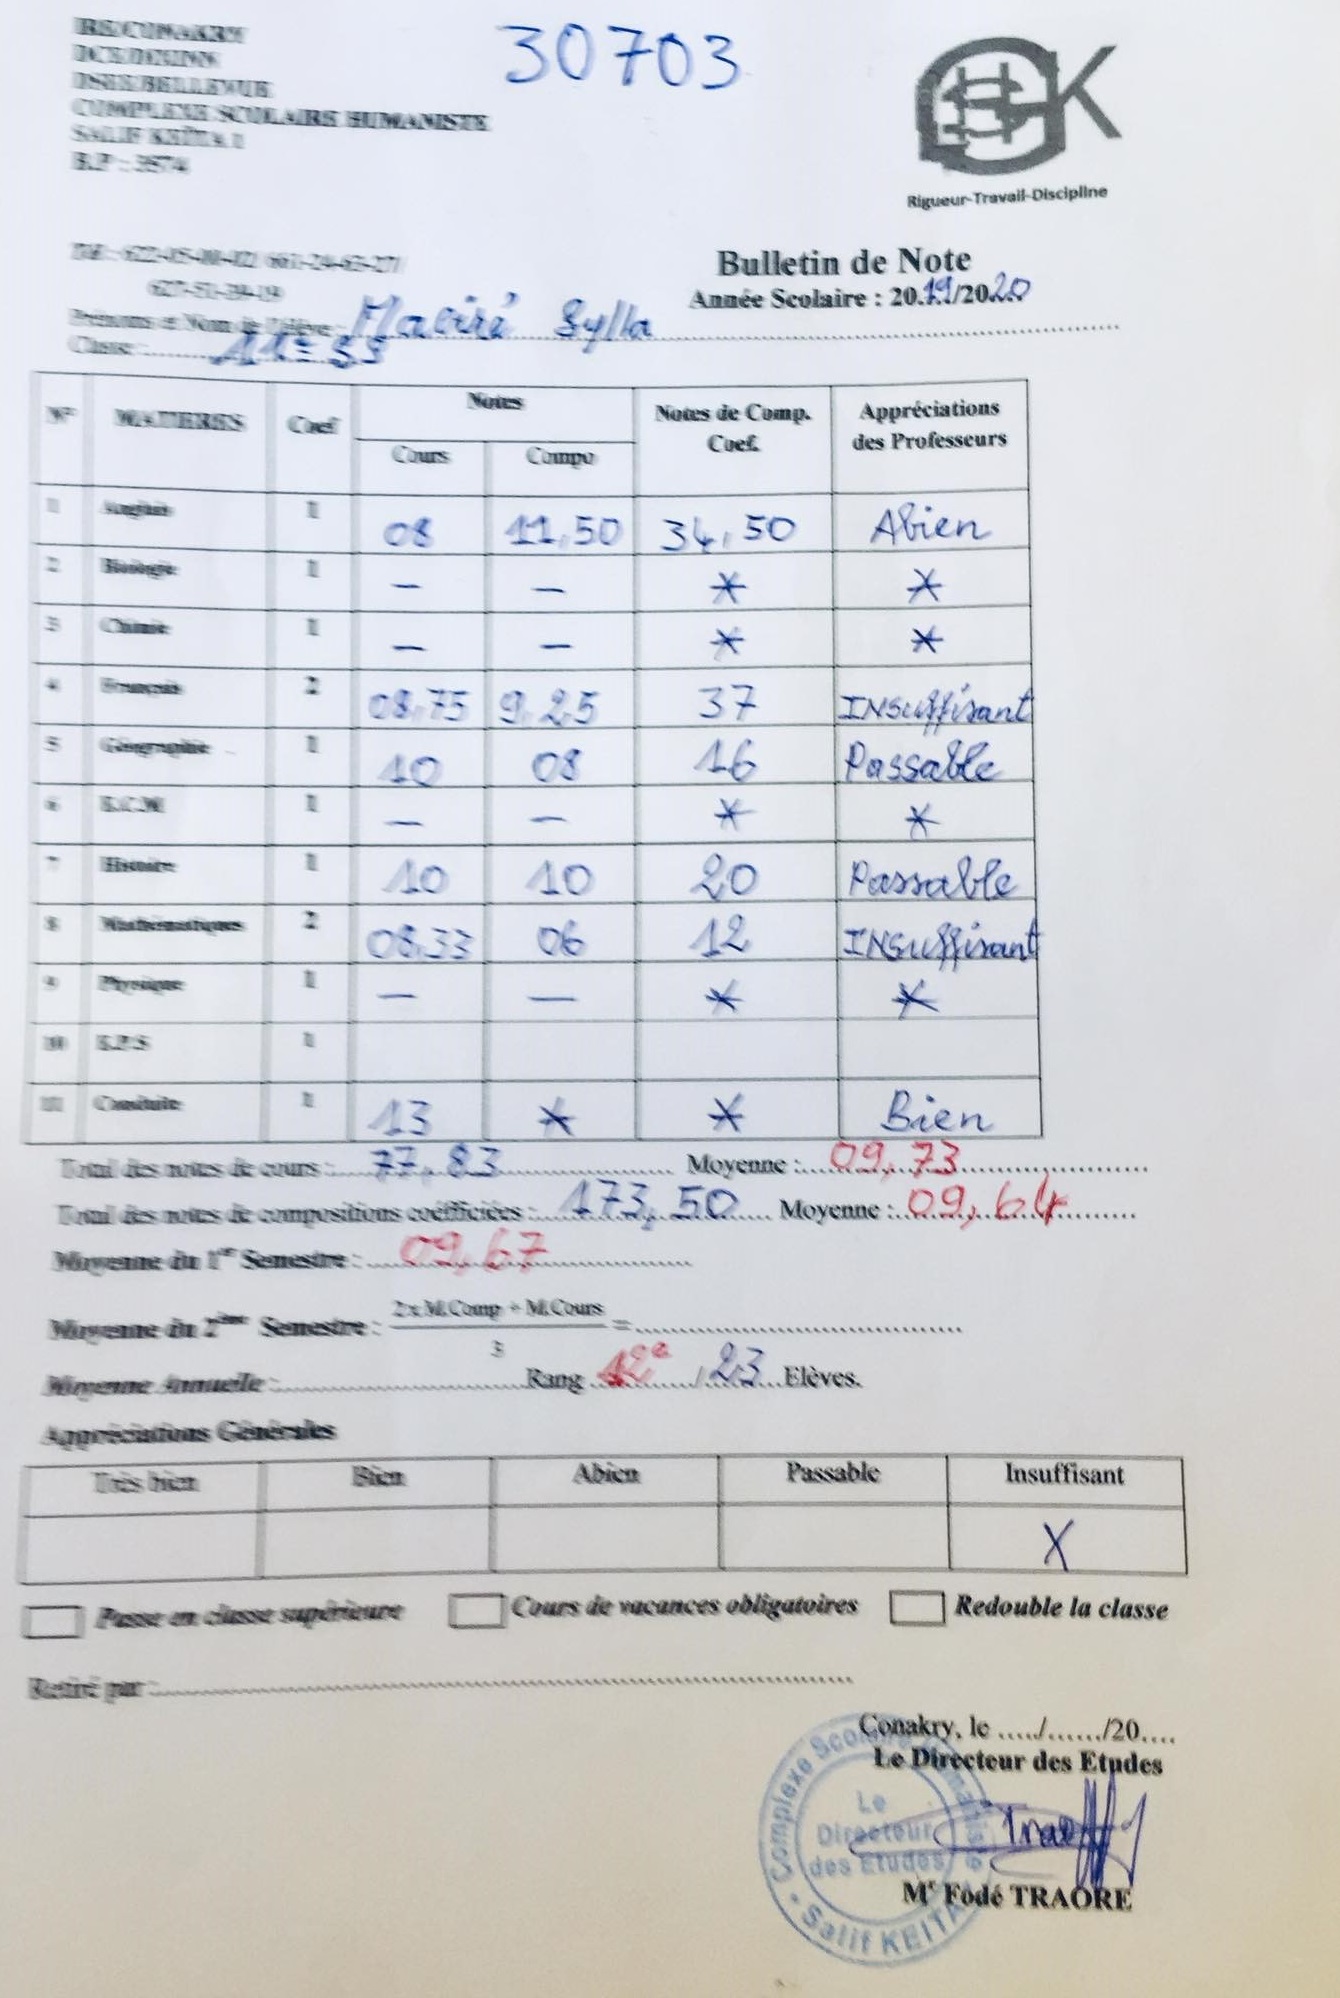 30703
IRE/CONAKRY
DCE/DIXINN
DSEE/BELLEVUE
COMPLEXE SCOLAIRE HUMANISTE
SALIF KEÏTA 1
B.P : 3574
Rigueur-Travail-Discipline
Bulletin de Note
Année Scolaire : 2019/2020
Prénoms et Nom de l'élève : Maciré Sylla
Classe : 11e SS
N° MATIERES Coef Notes Notes de Comp. Coef. Appréciations des Professeurs
Cours Compo
1 Anglais 1 08 11,50 34,50 Abien
2 Biologie 1 – – * *
3 Chimie 1 – – * *
4 Français 2 08,75 9,25 37 INSuffisant
5 Géographie 1 10 08 16 Passable
6 E.C.M 1 – – * *
7 Histoire 1 10 10 20 Passable
8 Mathématiques 2 08,33 06 12 INSuffisant
9 Physique 1 – – * *
10 E.P.S 1
11 Conduite 1 13 * * Bien
Total des notes de cours : 77,83 Moyenne : 09,73
Total des notes de compositions coéfficiées : 173,50 Moyenne : 09,64
Moyenne du 1er Semestre : 09,67
Moyenne du 2ème Semestre : 2 x M.Comp + M.Cours / 3 =
Moyenne Annuelle : Rang 12e / 23 Elèves.
Appréciations Générales
Très bien Bien Abien Passable Insuffisant
X
Passe en classe supérieure Cours de vacances obligatoires Redouble la classe
Retiré par :
Conakry, le ...../....../20....
Le Directeur des Etudes
Complexe Scolaire Humaniste Salif KEITA
Le
Directeur
des Etudes
Mr Fodé TRAORE